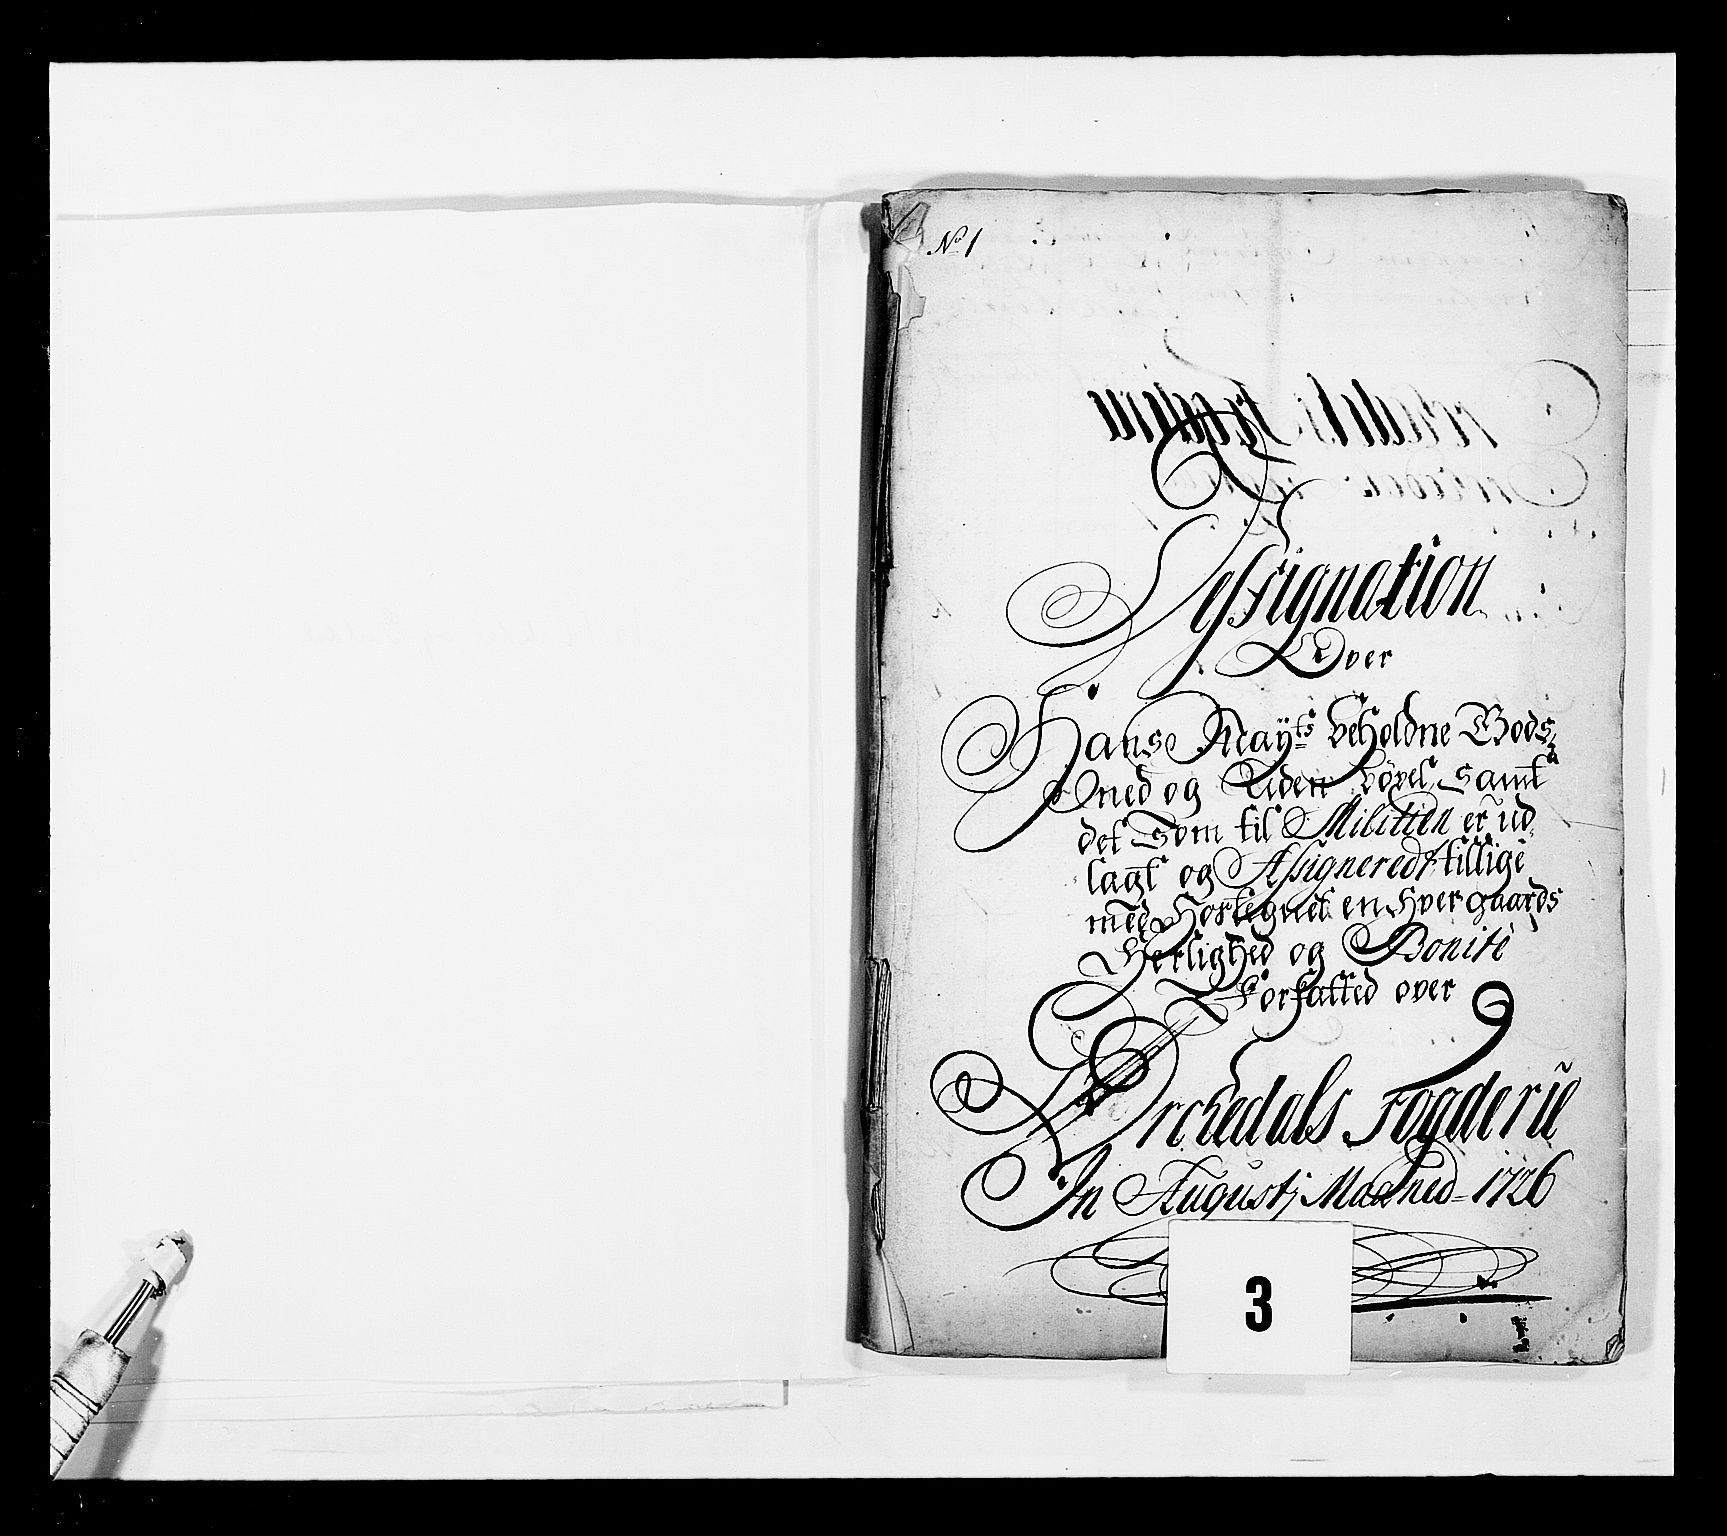 No 1
Dessignation
Over
Hans Mayts beholdne Gods,
Med og Uden bøxel, samt
det Som til Militien er ud,
lagt og Assigneret tillige
med Hostegnet en hver gaards
Herlighed og Bonite
Forfatted over
Orchedals Fogderie
In Augustj Maaned 1726
3